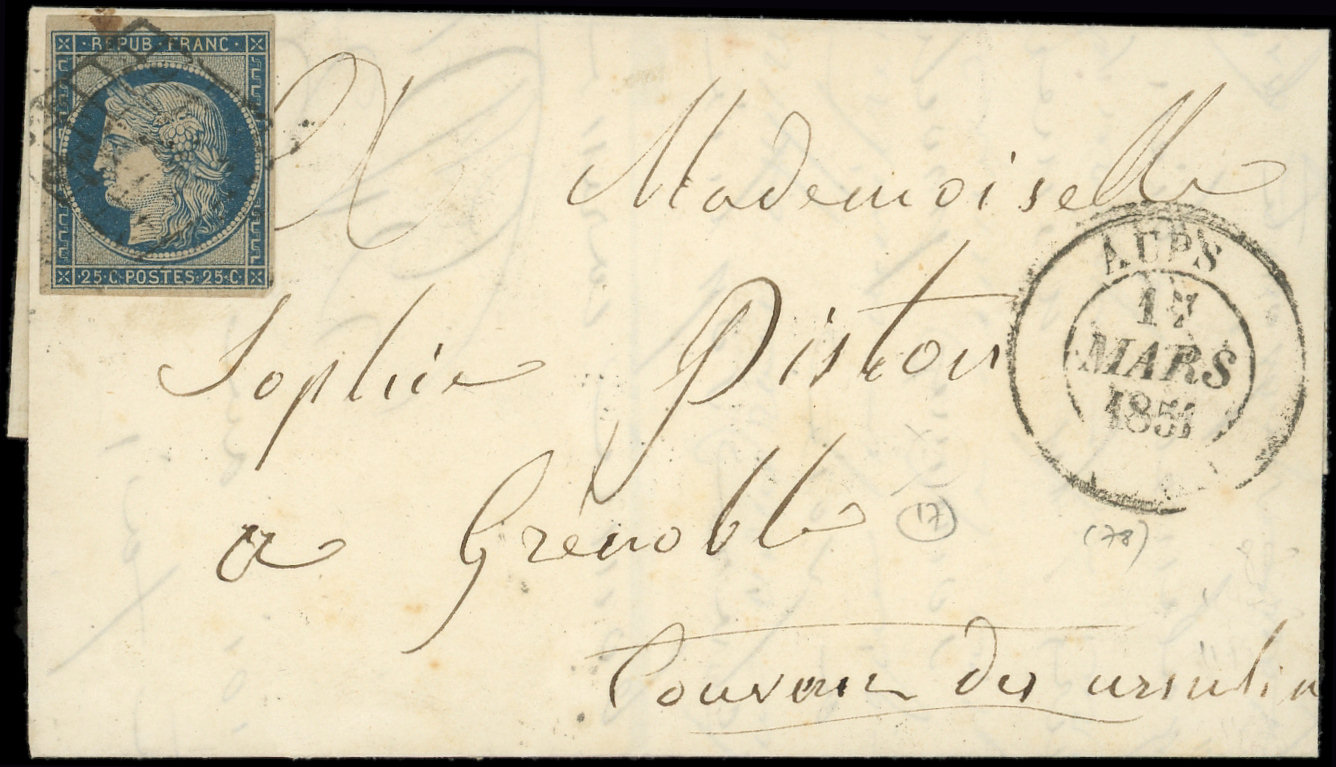 REPUB · FRANC ·
25 · C POSTES · 25 · C
A Mademoiselle
Sophie Piston
a Grénoble
Couvent des ursulin
AUPS
17
MARS
1851
(17)
(78)